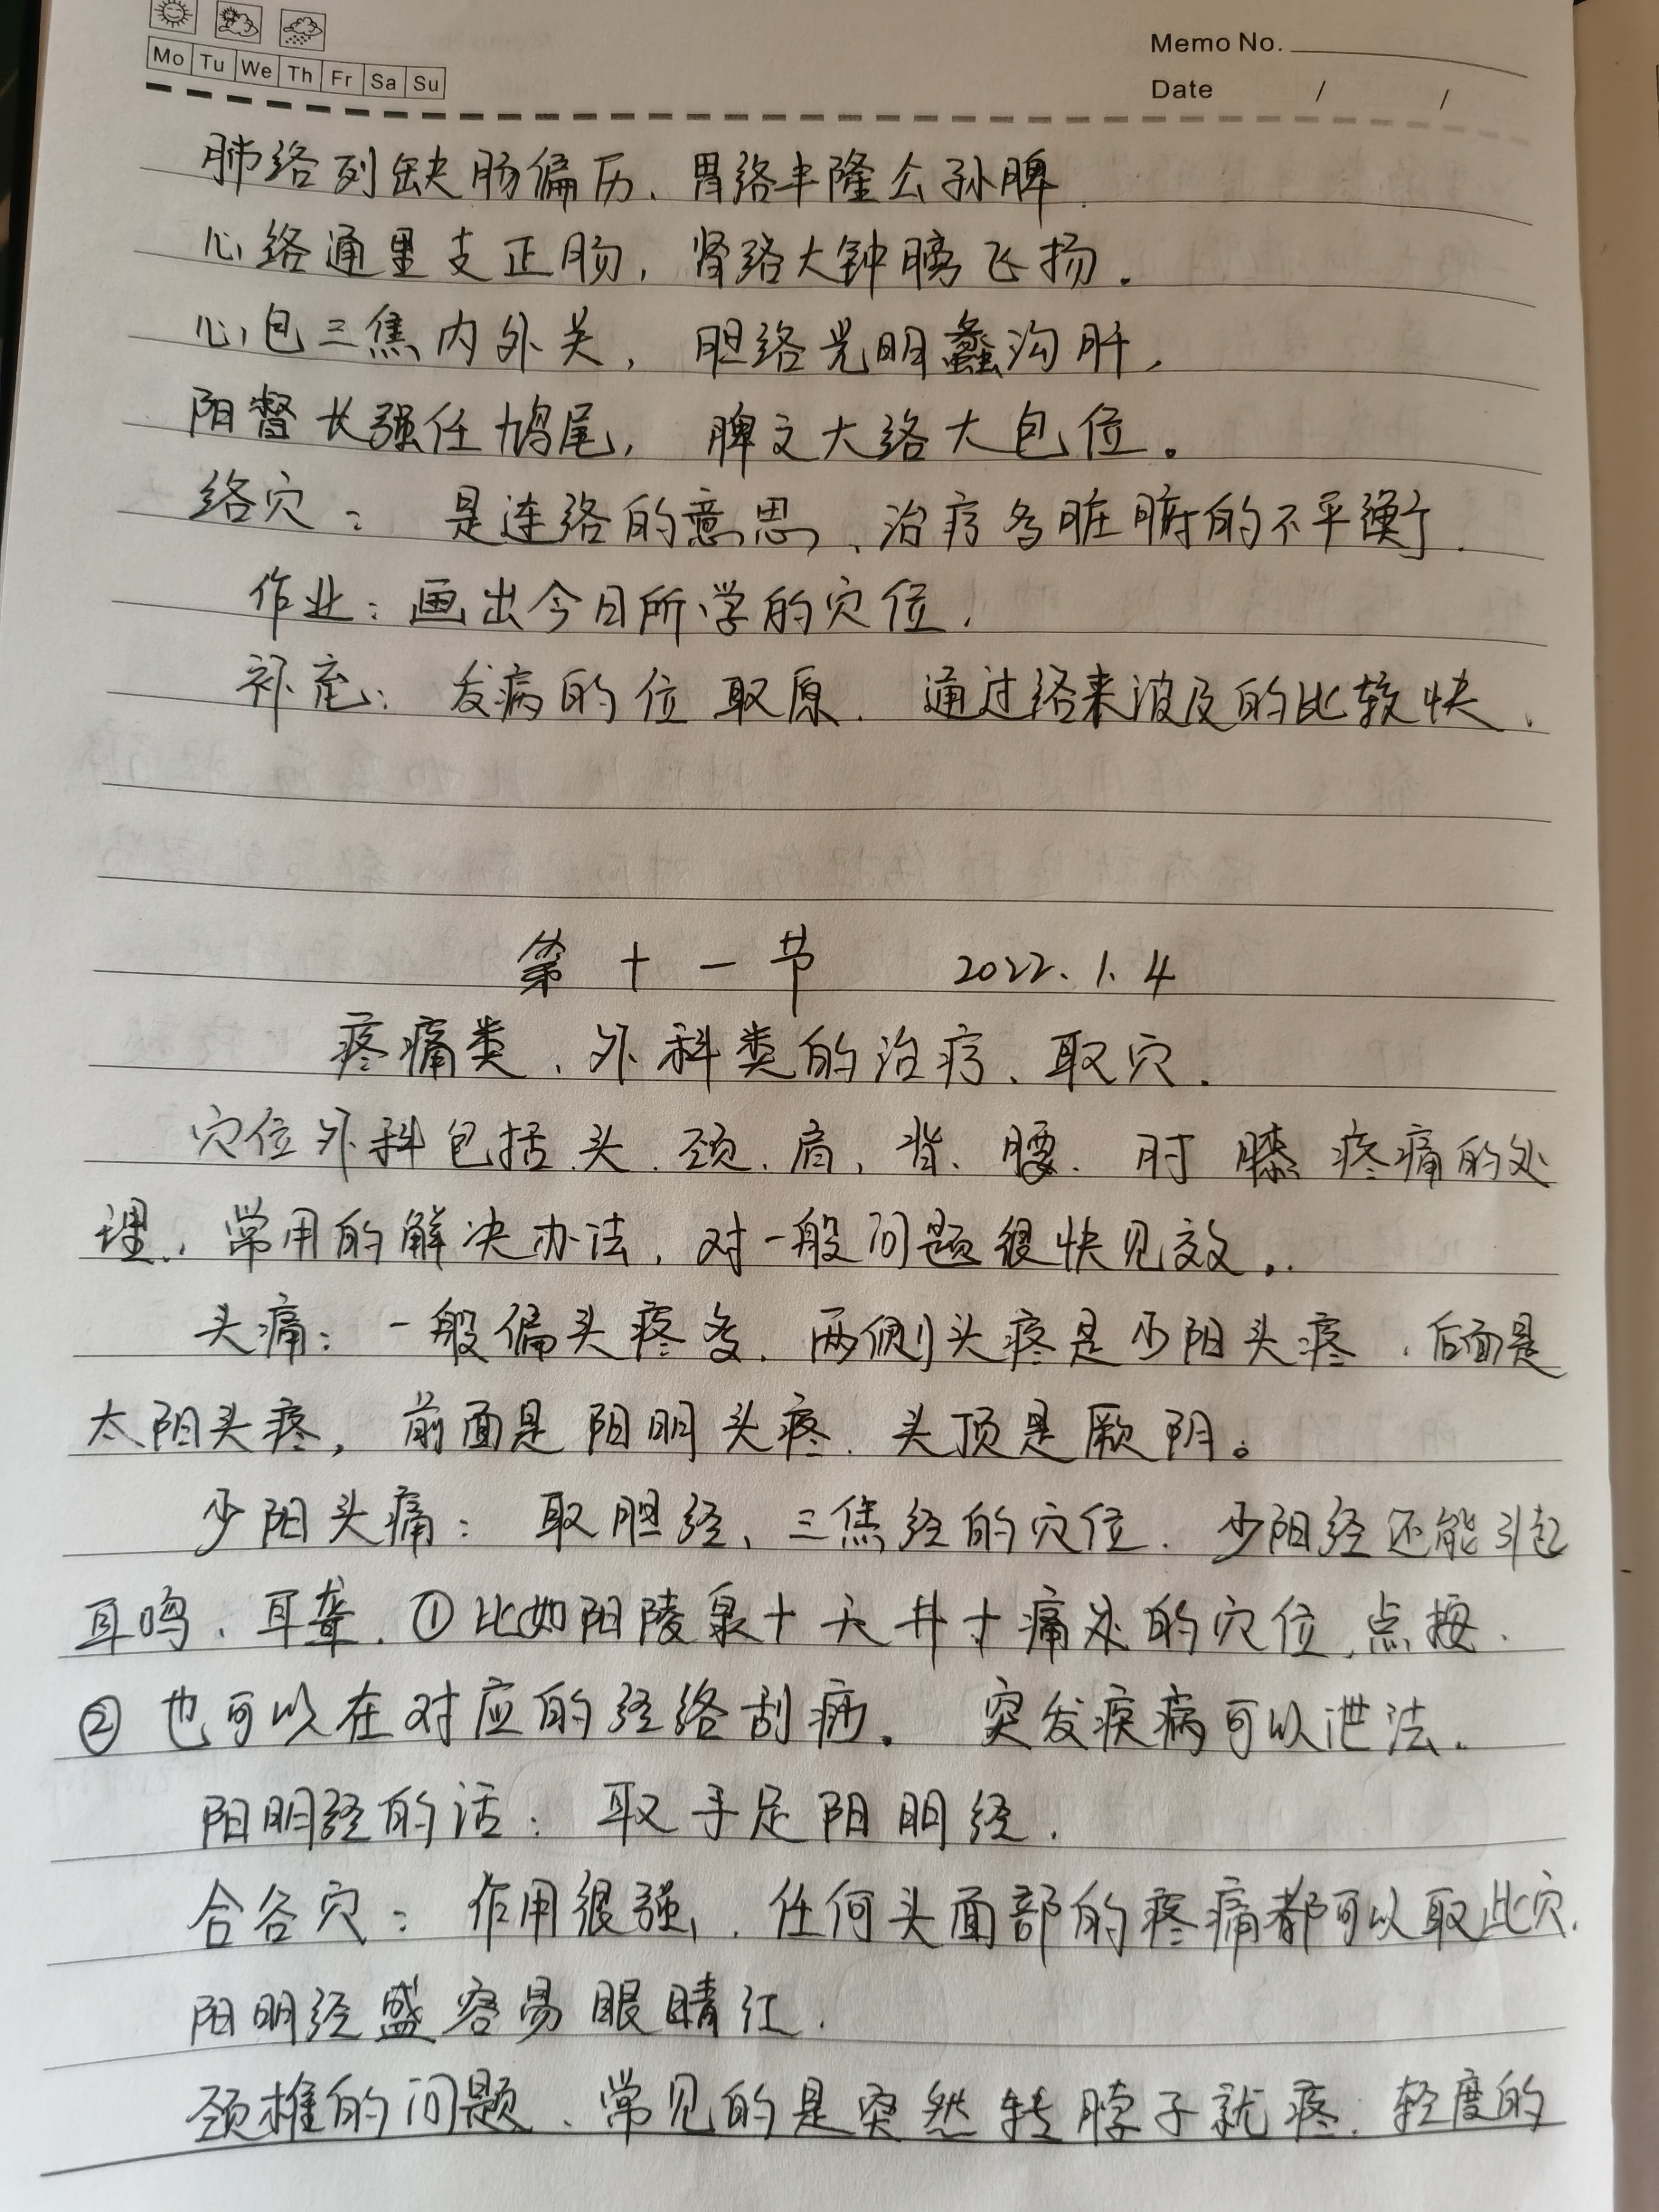 Mo Tu We Th Fr Sa Su
Memo No.
Date / /
肺络列缺肠偏历、胃络丰隆公孙脾.
心络通里支正肠，肾络大钟膀飞扬.
心包三焦内外关，胆络光明蠡沟肝，
阳督长强任鸠尾，脾之大络大包位。
络穴：是连络的意思、治疗多脏腑的不平衡.
作业：画出今日所学的穴位.
补充：发病的位取原. 通过络来波及的比较快.
第十一节 2022.1.4
疼痛类、外科类的治疗、取穴.
穴位外科包括头.颈.肩、背、腰.肘膝疼痛的处
理.、常用的解决办法，对一般问题很快见效..
头痛：一般偏头疼多.两侧头疼是少阳头疼.后面是
太阳头疼，前面是阳明头疼.头顶是厥阴。
少阳头痛：取胆经、三焦经的穴位.少阳经还能引起
耳鸣、耳聋.①比如阳陵泉+天井+痛处的穴位,点按.
②也可以在对应的经络刮痧。突发疾病可以泄法.
阳明经的话：取手足阳明经.
合谷穴：作用很强，.任何头面部的疼痛都可以取此穴.
阳明经盛容易眼睛红.
颈椎的问题、常见的是突然转脖子就疼.轻度的